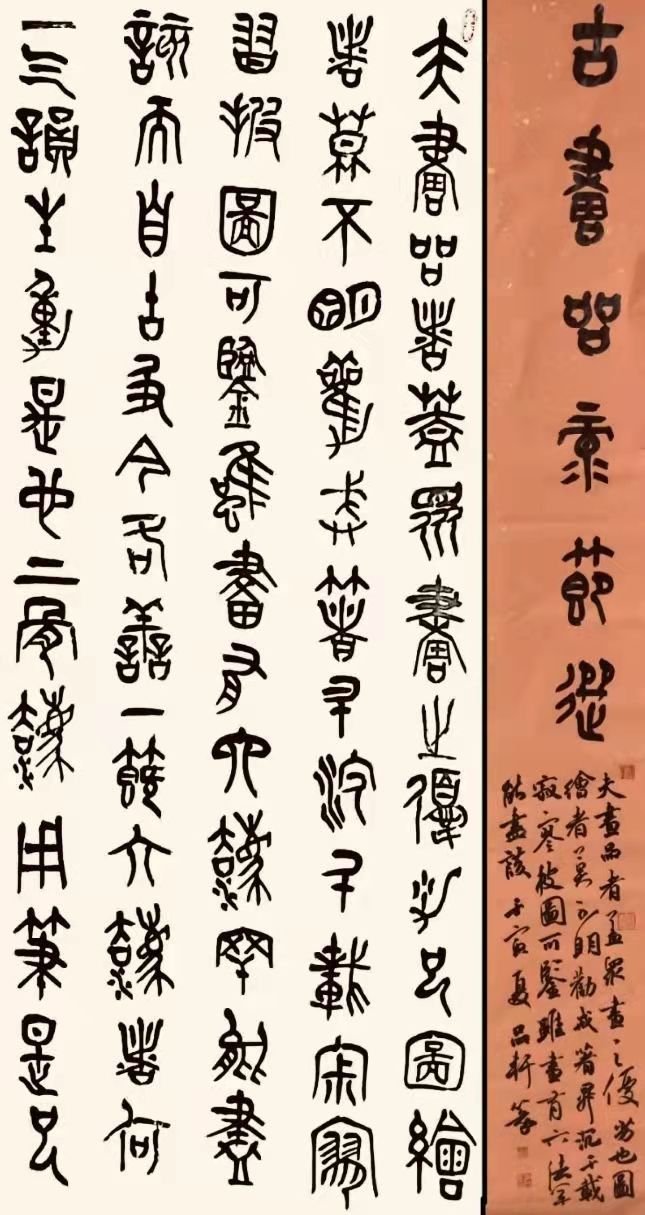 古畫品彔節選
夫畫品者盖眾畫之優劣也圖
繪者莫不明勸戒著昇沉千載
寂寥披圖可鑒雖畫有六法罕
能盡該 壬寅夏品軒篆
夫畫品者蓋眾畫之優劣也圖繪
者莫不明勸戒著升沉千載寂寥
習披圖可鑒雖畫有六灋罕能盡
該而自古及今各善一節六灋者何
一气韻生動是也二骨灋用筆是也